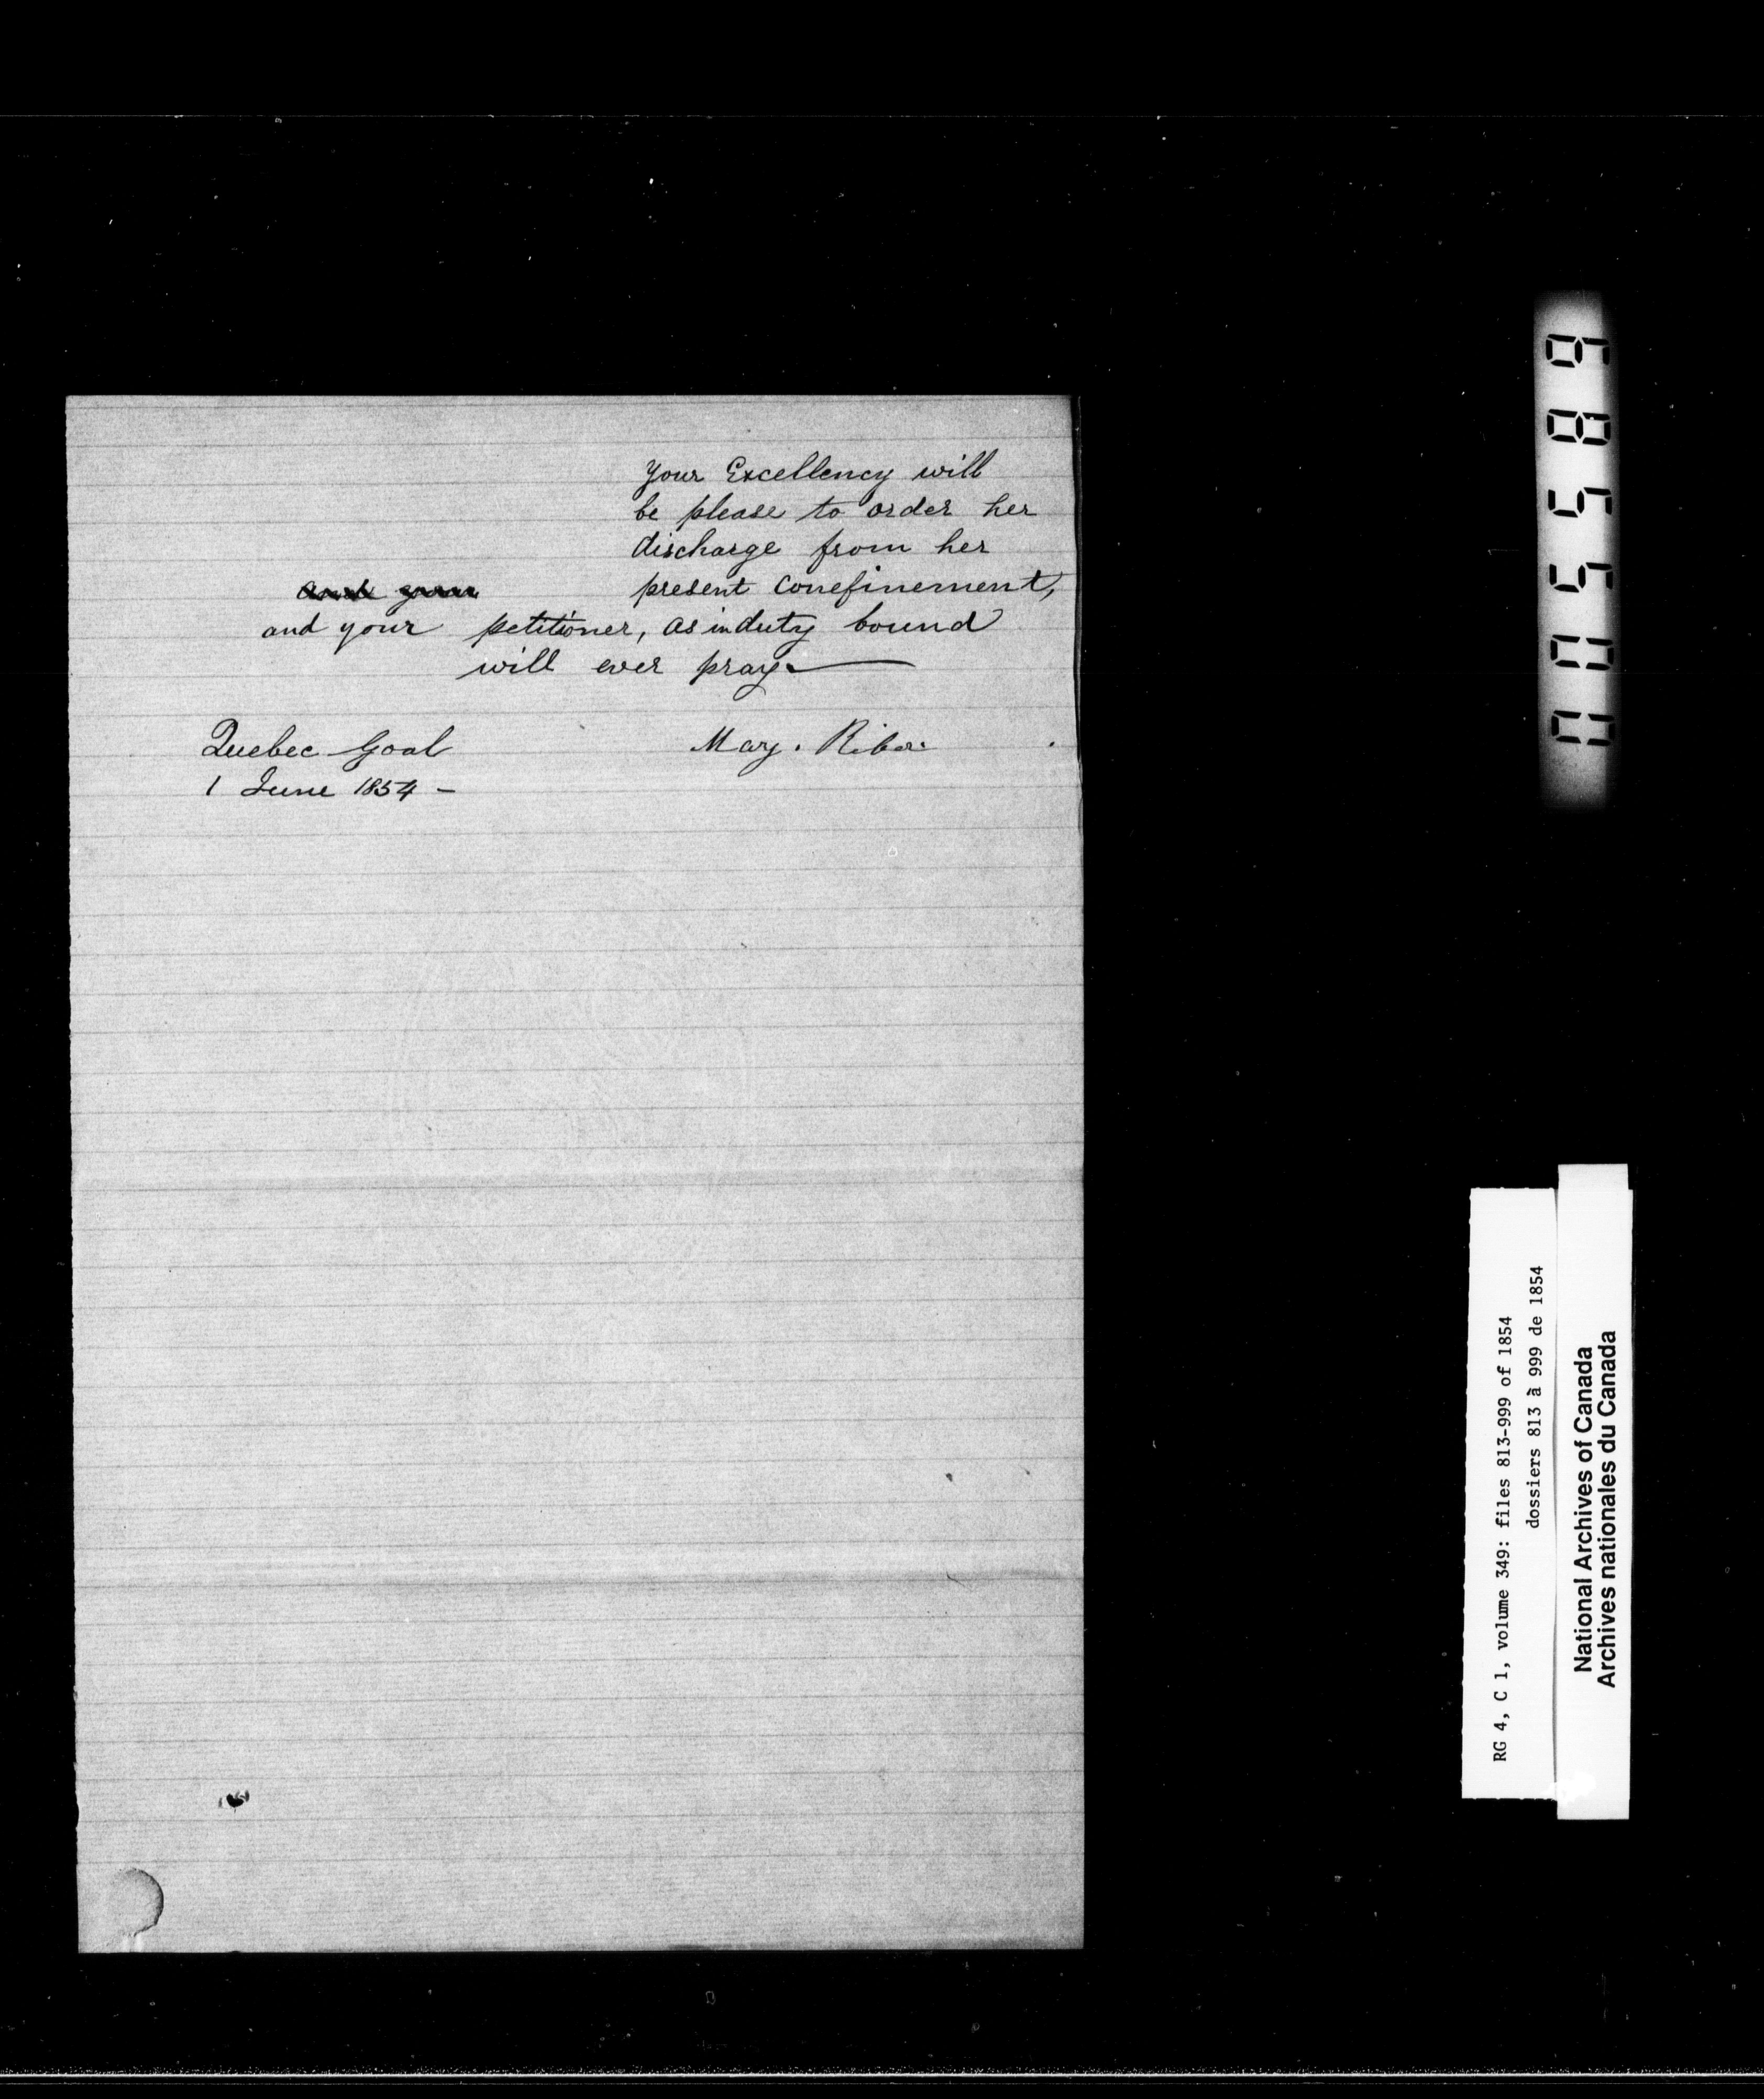 Your Excellency will
be please to order her
discharge from her
present conefinement,
and your
and your petitioner, as in duty bound
will ever pray.
Quebec Goal
Mary.
1 June 1854 -
005589
RG 4, C 1, volume 349: files 813-999 of 1854
dossiers 813 à 999 de 1854
National Archives of Canada
Archives nationales du Canada